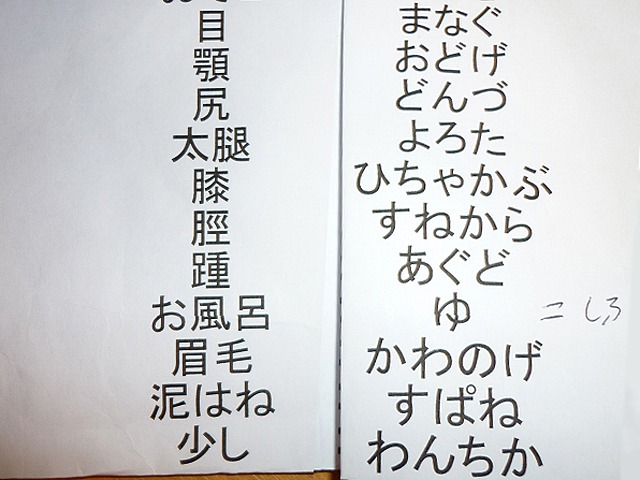 目 まなぐ
顎 おどげ
尻 どんづ
太腿 よろた
膝 ひちゃかぶ
脛 すねから
踵 あぐど
お風呂 ゆ
眉毛 かわのげ
泥はね すぱね
少し わんちか